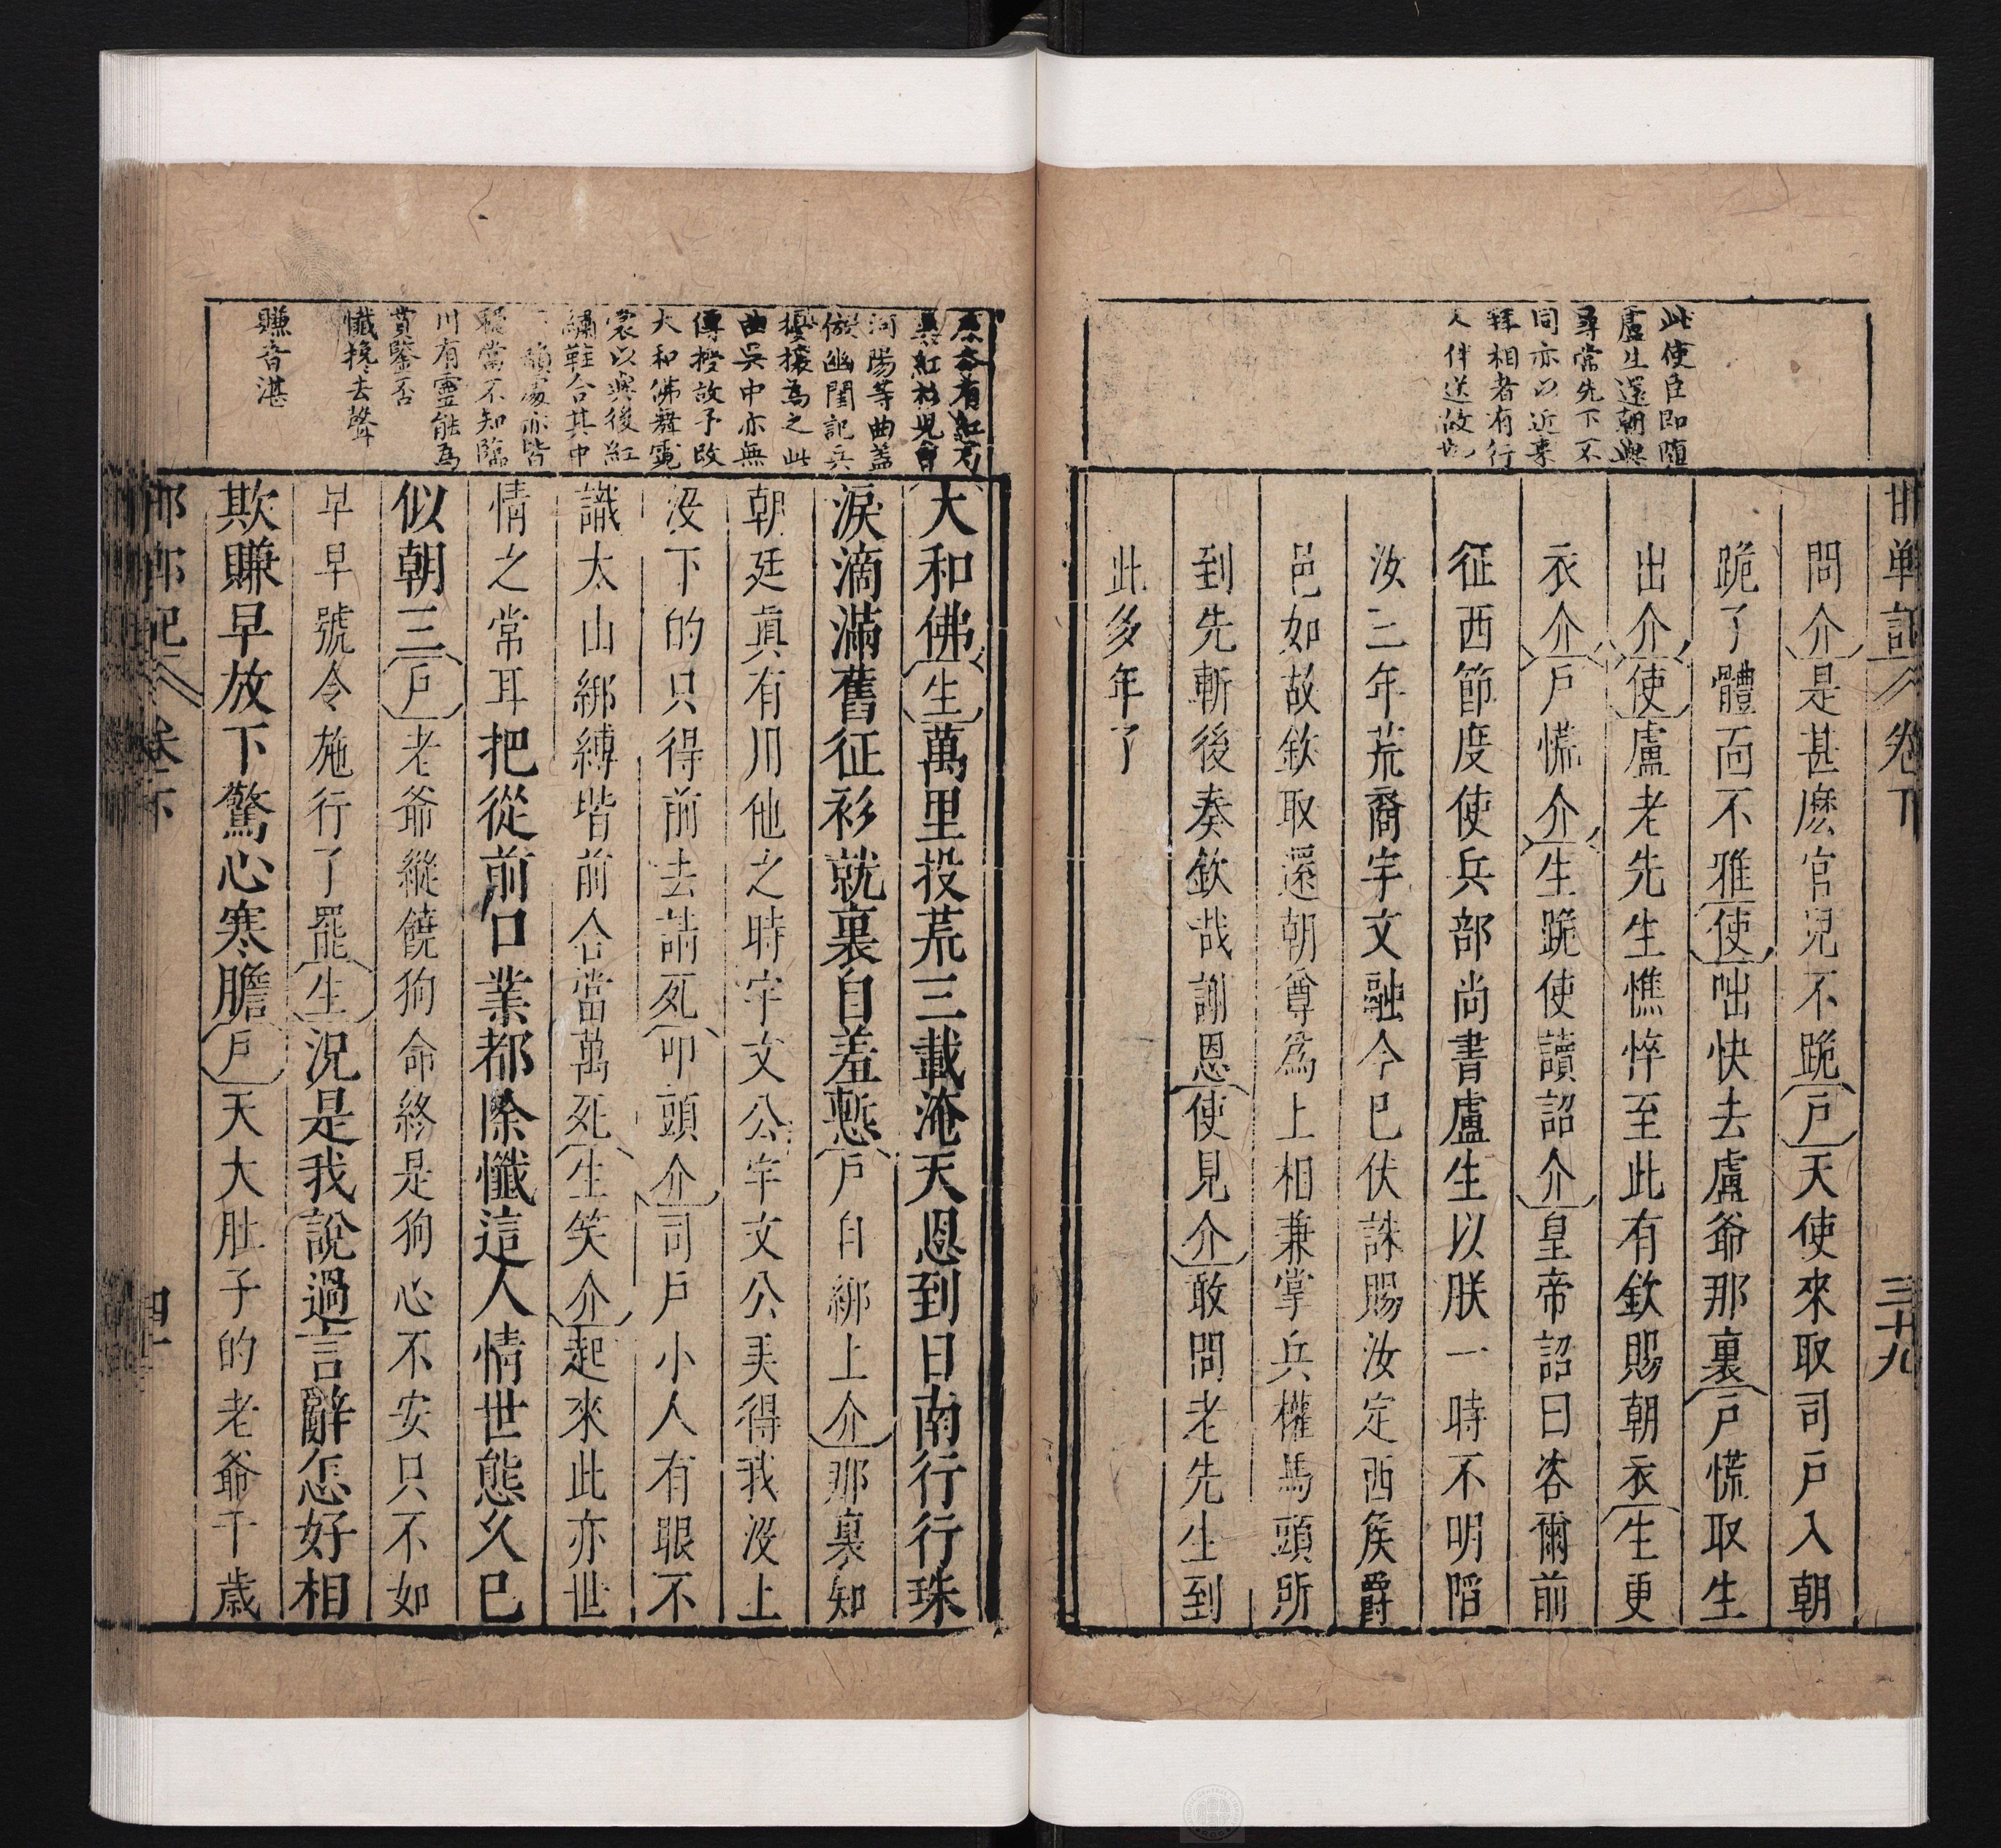 邯鄲記 卷下 三十九
此使臣即隨
盧生還朝與
尋常先下不
同亦以近來
拜相者有行
人伴送故也
問介是甚麽官兒不跪戶天使來取司戶入朝
跪了體面不雅使咄快去盧爺那裏戶慌取生
出介使盧老先生憔悴至此有欽賜朝衣生更
衣介戶慌介生跪使讀詔介皇帝詔曰咨爾前
征西節度使兵部尚書盧生以朕一時不明陷
汝三年荒裔宇文融今已伏誅賜汝定西侯爵
邑如故欽取還朝尊爲上相兼掌兵權馬頭所
到先斬後奏欽哉謝恩使見介敢問老先生到
此多年了
河陽等曲蓋
倣幽閨記兵
擾攘爲之此
曲吳中亦無
傳授故予改
大和佛舞霓
裳以與後紅
繡鞋合其中
韻處亦皆
穩當不知臨
川有靈能爲
賞鑒否
懺攙去聲
賺音湛
大和佛生萬里投荒三載淹天恩到日南行行珠
淚滴滿舊征衫就裏自羞慙戶自綁上介那裏知
朝廷真有用他之時宇文公宇文公美得我沒上
沒下的只得前去請死叩頭介司戶小人有眼不
識太山綁縛堦前合當萬死生笑介起來此亦世
情之常耳把從前口業都除懺這人情世態久已
似朝三戶老爺縱饒狗命終是狗心不安只不如
早早號令施行了罷生況是我說過言辭怎好相
欺賺早放下驚心寒膽戶天大肚子的老爺千歲
邯鄲記 卷下 四十